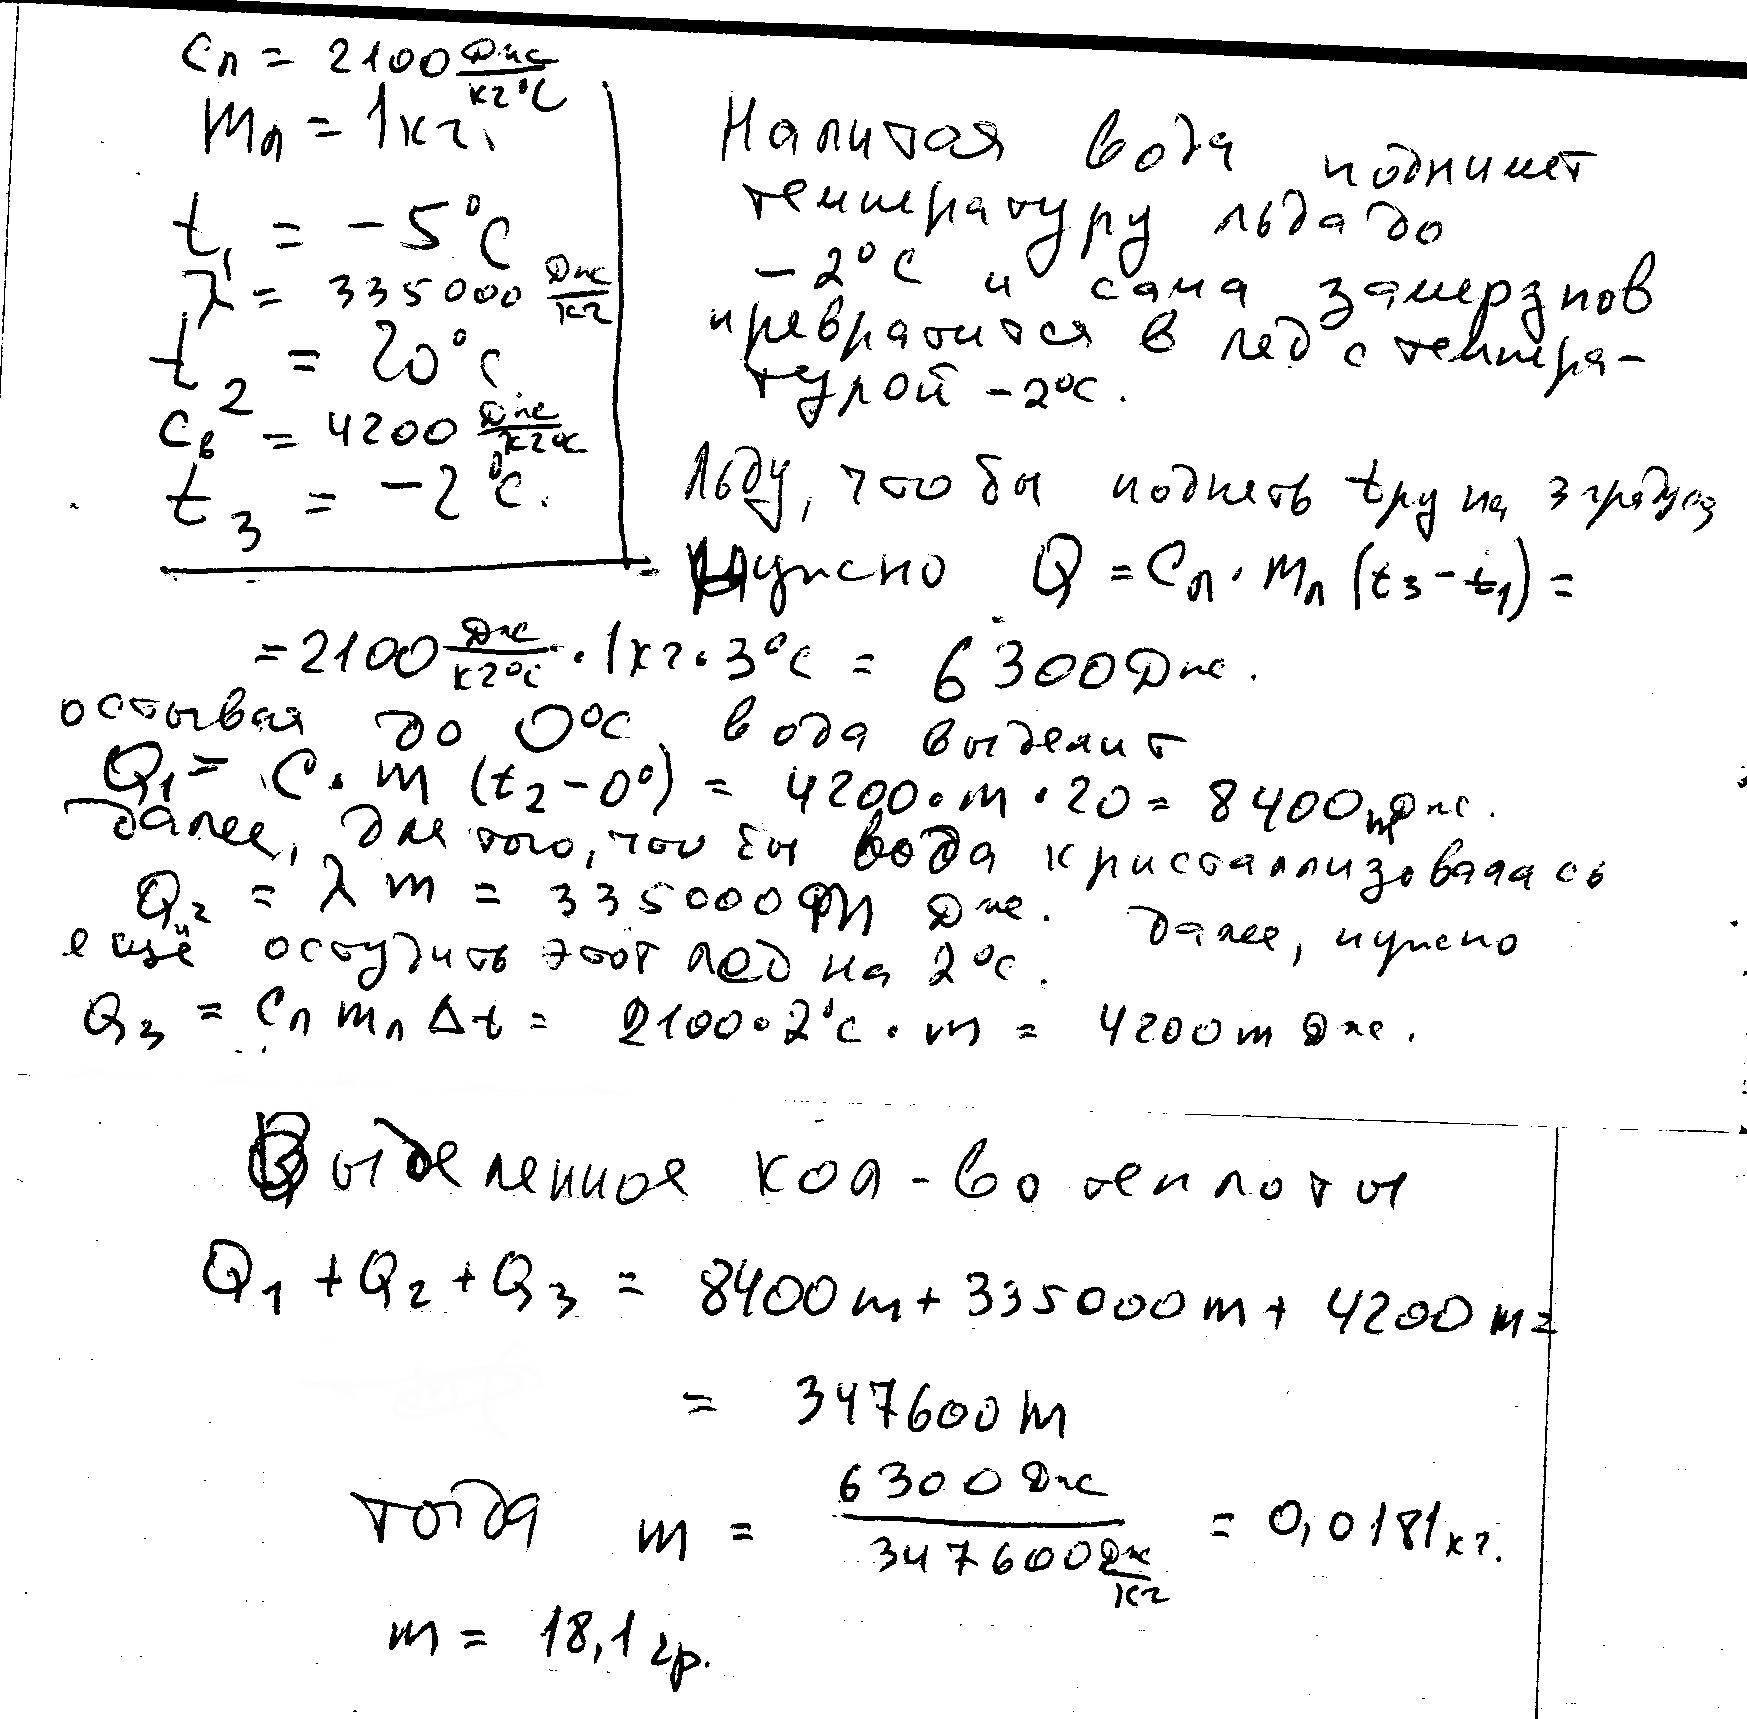 Cл = 2100 Дж/кг°С
mл = 1кг.
t₁ = -5°С
λ = 335000 Дж/кг
t₂ = 20°С
Cв = 4200 Дж/кг°С
t₃ = -2°С.
Налитая вода поднимет
температуру льда до
-2°С и сама замерзнов
превратится в лед с темпера-
турой -2°С.
Льду, что бы поднять tру на 3 градуса
нужно Q = Cл · mл (t₃ - t₁) =
= 2100 Дж/кг°С · 1кг · 3°С = 6300Дж.
остывая до 0°С вода выделит
Q₁ = C · m (t₂ - 0°) = 4200 · m · 20 = 8400m Дж.
далее, для того, что бы вода кристаллизовалась
Q₂ = λ m = 335000 m Дж. далее, нужно
ещё остудить этот лед на 2°С.
Q₃ = Cл mл Δt = 2100 · 2°С · m = 4200 m Дж.
Выделенное кол-во теплоты
Q₁ + Q₂ + Q₃ = 8400 m + 335000 m + 4200 m =
= 347600 m
тогда m = 6300 Дж / 347600 Дж/кг = 0,0181 кг.
m = 18,1 гр.